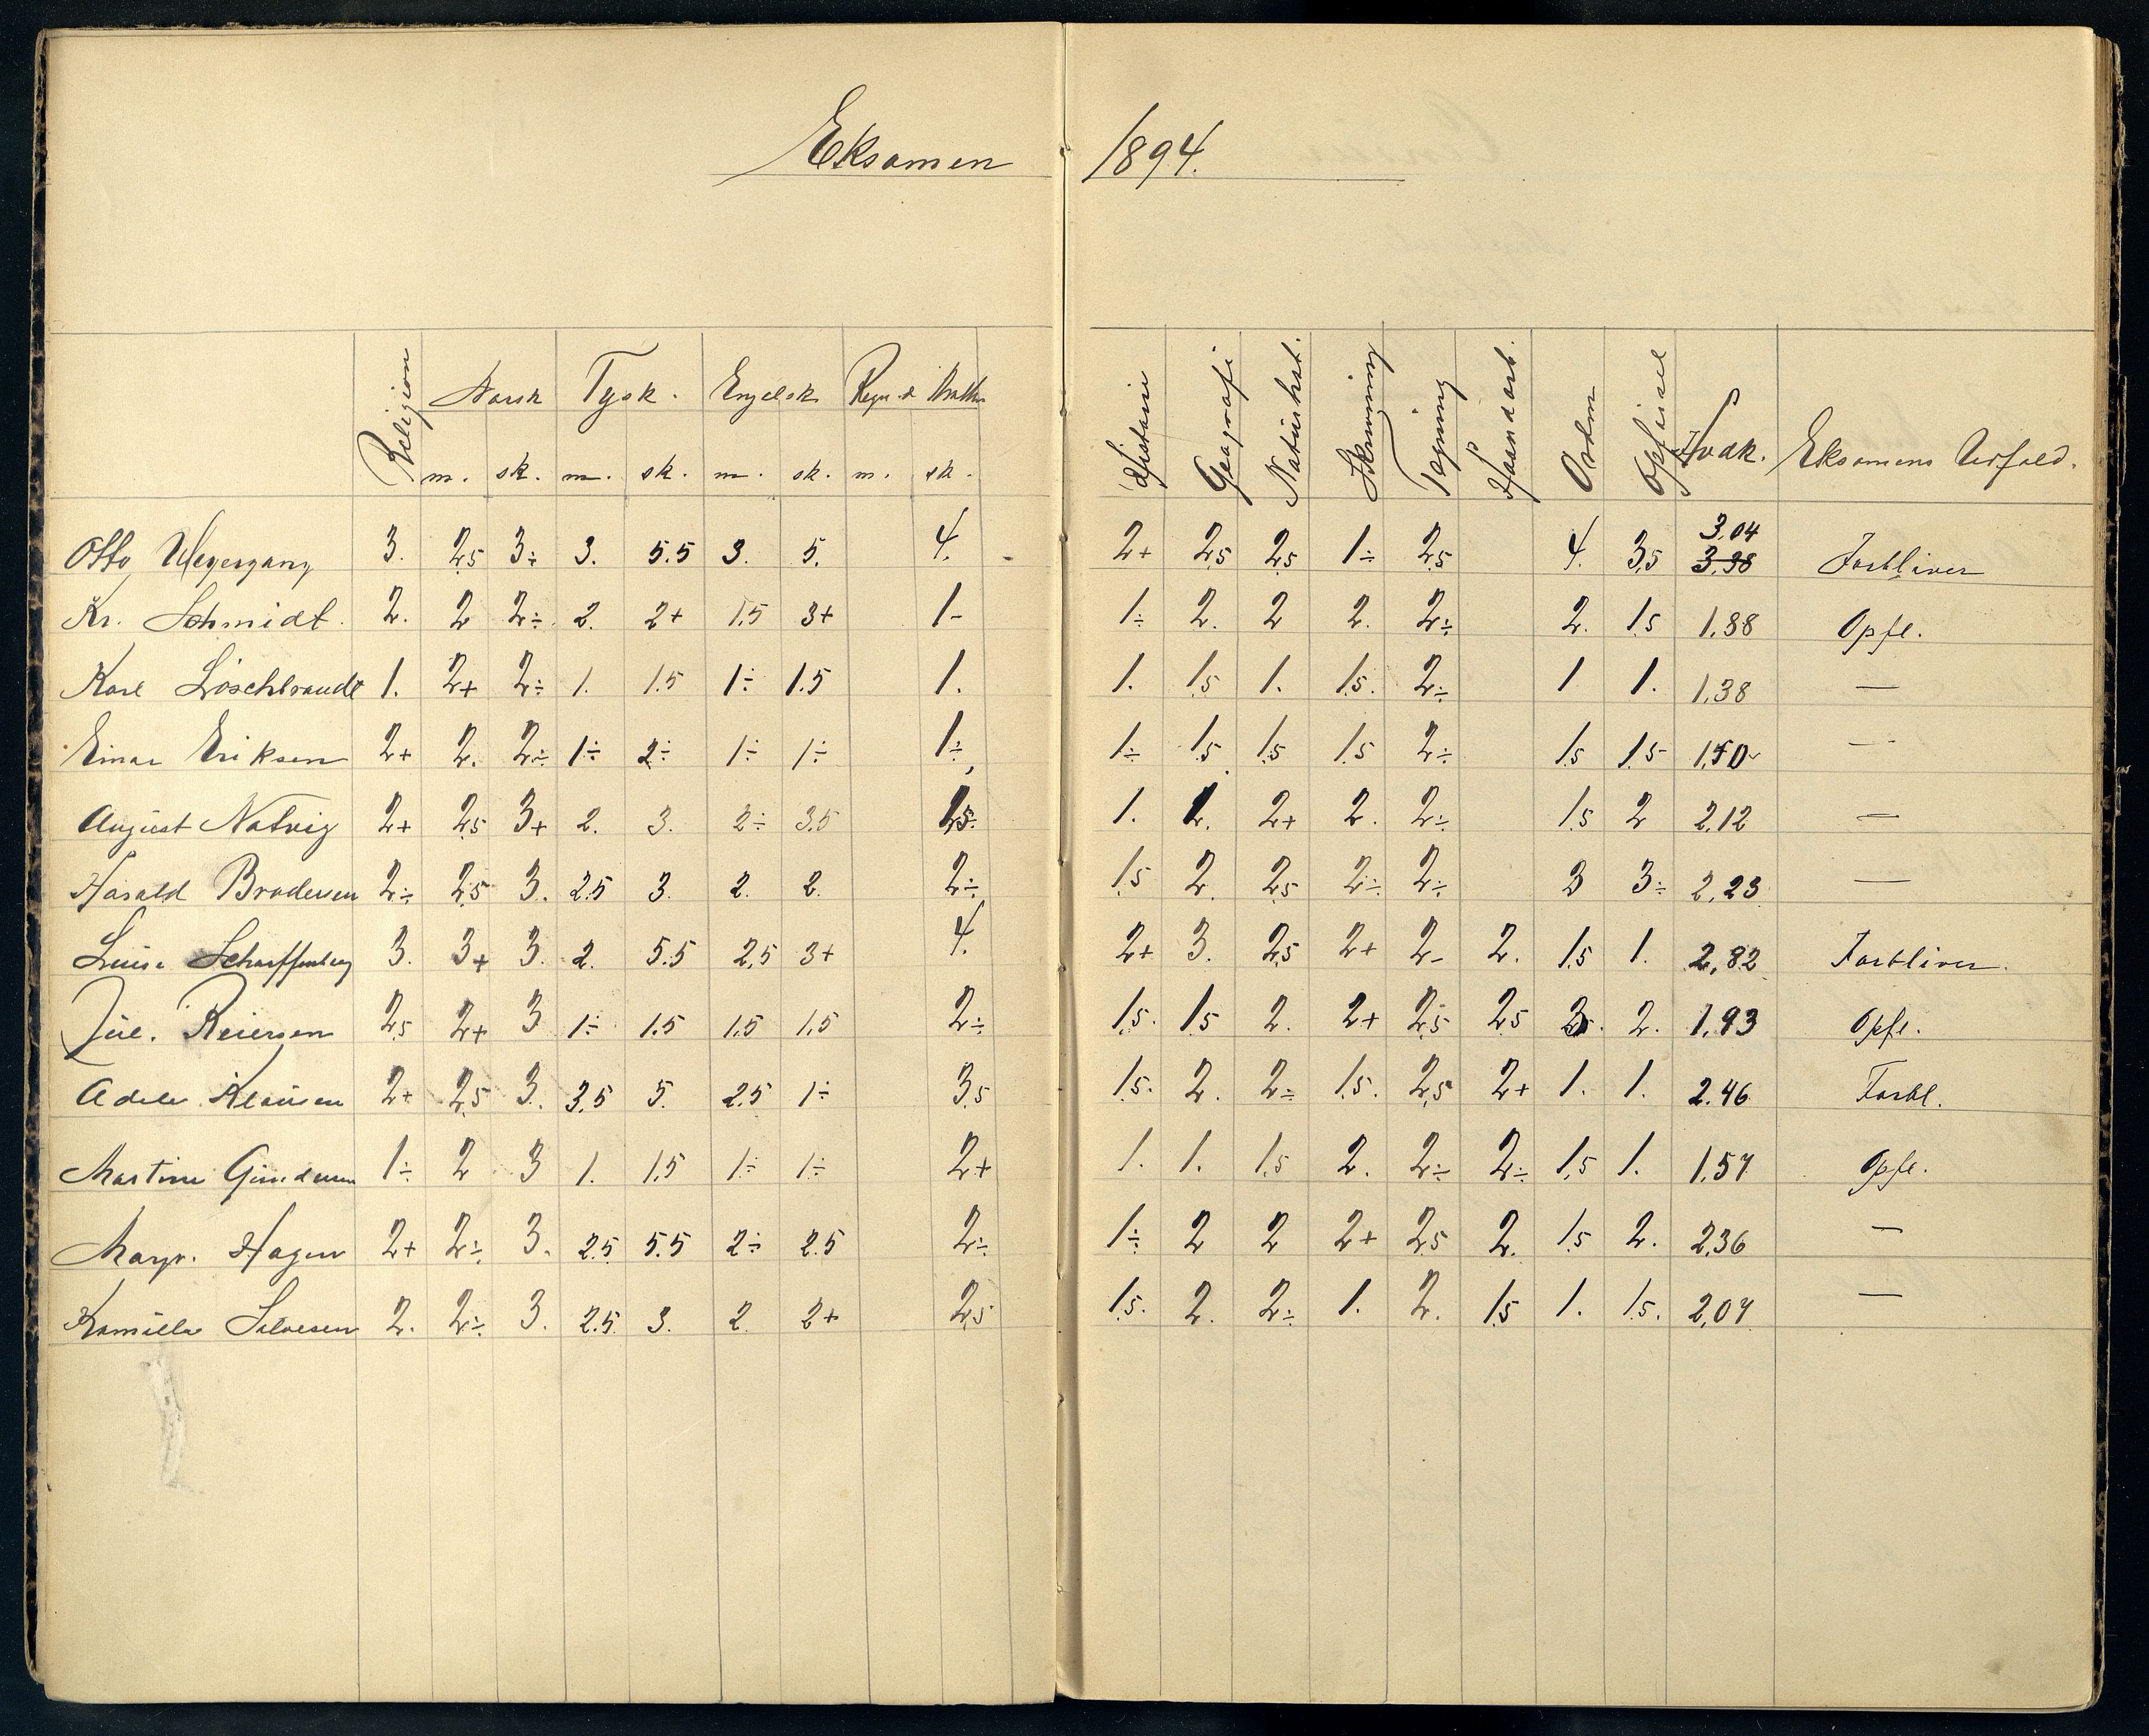 Eksamen 1894.
Religion Norsk Tysk. Engelsk Regn. & Math. Historie Geografi Naturhist. Skrivning Tegning Haandarb. Orden Opførsel Hvdk. Eksamens Udfald.
m. sk. m. sk. m. sk. m. sk.
Otto Wegergang 3. 2,5 3÷ 3. 5.5 3. 5. 4. 2+ 2,5 2,5 1÷ 2,5 4. 3,5 3,04 3,98 Forbliver
Kr. Schmidt. 2. 2 2÷ 2. 2+ 1,5 3+ 1- 1÷ 2. 2 2. 2÷ 2. 1,5 1,88 Opfl.
Karl Löschbrandt 1. 2+ 2÷ 1. 1.5 1÷ 1.5 1. 1. 1,5 1. 1,5. 2÷ 1 1. 1,38 —
Einar Eriksen 2+ 2. 2÷ 1÷ 2÷ 1÷ 1÷ 1÷ 1÷ 1,5 1,5 1,5 2÷ 1,5 1,5 1,50 —
August Natvig 2+ 2,5 3+ 2. 3. 2÷ 3.5 1. 2+ 2. 2÷ 1,5 2 2,12 —
Harald Brodersen 2÷ 2,5 3. 2.5 3. 2. 2. 2÷ 1,5 2. 2,5 2÷ 2÷ 3 3÷ 2,23 —
Luise Scharffenberg 3. 3+ 3. 2. 5.5 2,5 3+ 4. 2+ 3. 2,5 2+ 2- 2. 1,5 1. 2,82 Forbliver.
Jul. Reiersen 2,5 2+ 3 1÷ 1.5 1,5 1,5 2÷ 1,5. 1,5 2. 2+ 2,5 2,5 2. 1,93 Opfl.
Adele Klausen 2+ 2,5 3. 3,5 5. 2.5 1÷ 3,5 1,5. 2. 2÷ 1,5. 2,5 2+ 1. 1. 2.46 Forbl.
Martine Gundersen 1÷ 2 3 1. 1,5 1÷ 1÷ 2+ 1. 1. 1,5 2. 2÷ 2÷ 1,5 1. 1,57 Opfl.
Margr. Hagen 2+ 2÷ 3. 2.5 5.5 2÷ 2.5 2÷ 1÷ 2 2 2+ 2,5 2. 1,5 2. 2,36 —
Kamilla Salvesen 2. 2÷ 3. 2.5 3. 2. 2+ 2,5 1,5. 2. 2÷ 1. 2. 1,5 1. 1,5. 2,07 —